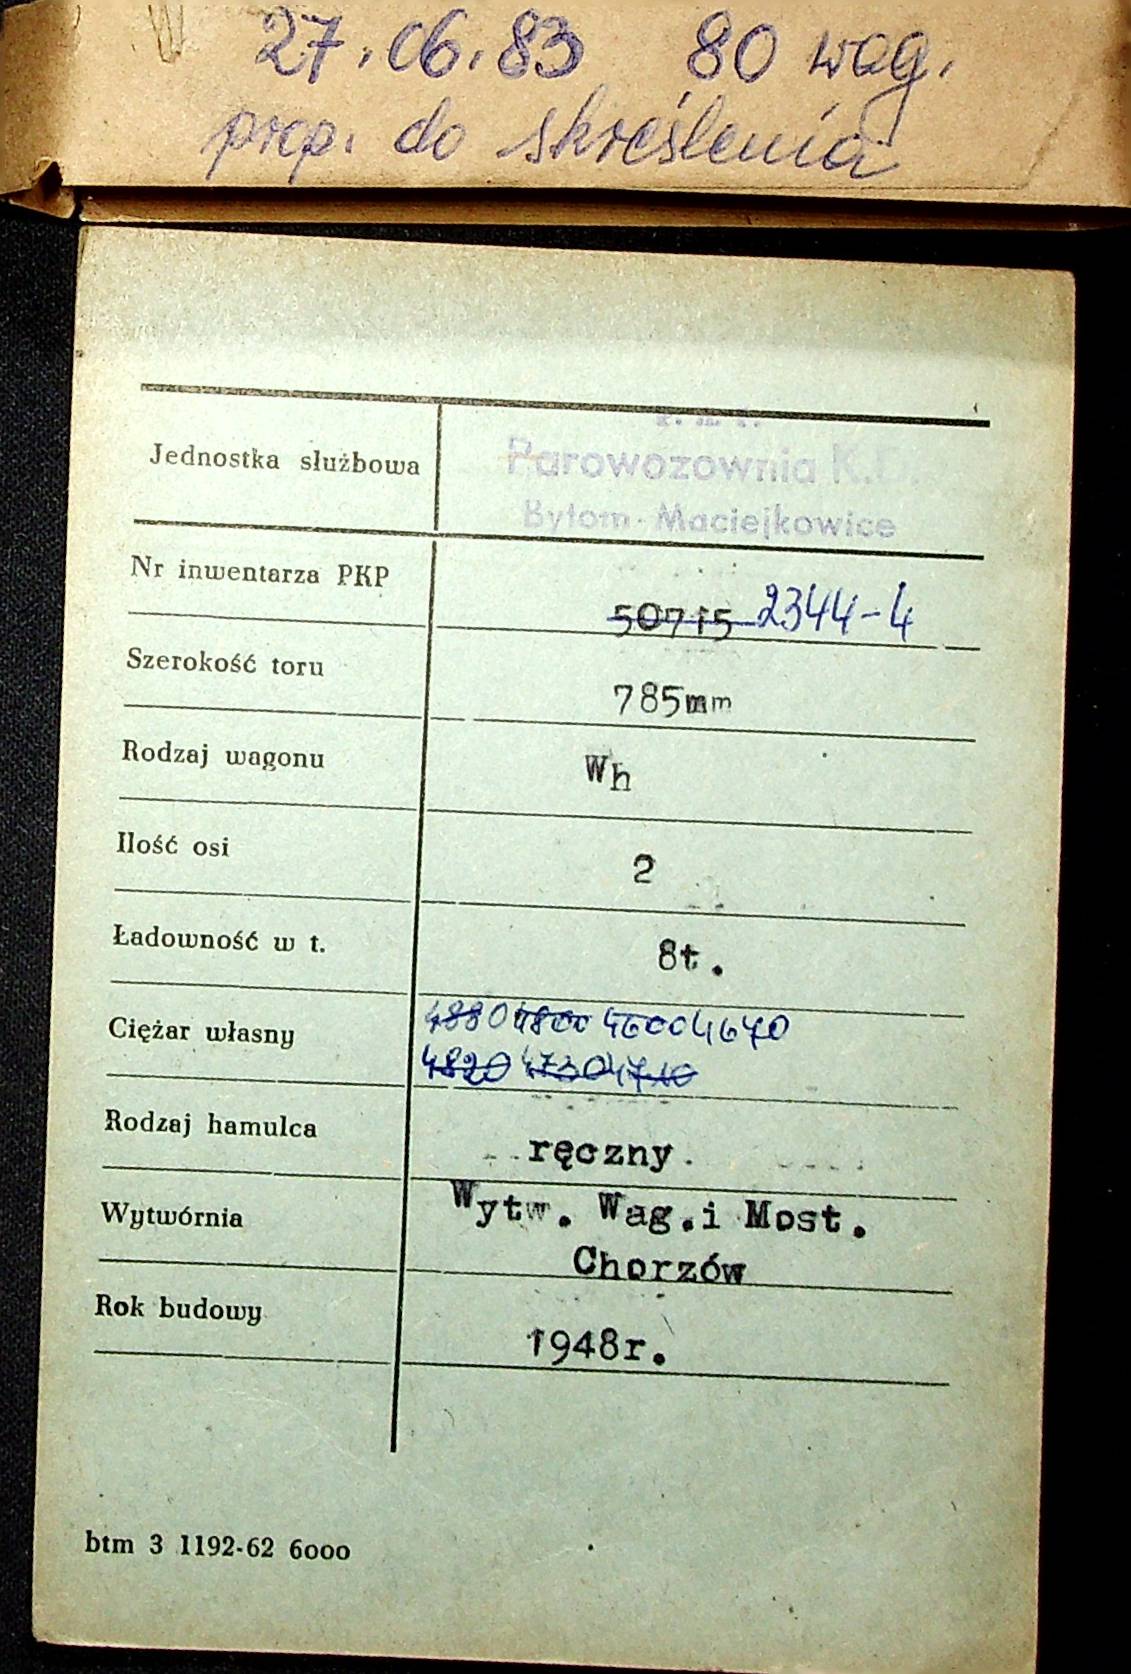 27.06.83 80 wag.
prop. do skreślenia
Jednostka służbowa
Parowozownia K.D.
Bytom-Maciejkowice
Nr inwentarza PKP 50715 2344-4
Szerokość toru 785mm
Rodzaj wagonu Wh
Ilość osi 2
Ładowność w t. 8t.
Ciężar własny 4880 4800 4600 4670
4820 4730 4710
Rodzaj hamulca ręczny.
Wytwórnia Wytw. Wag.i Most.
Chorzów
Rok budowy 1948r.
btm 3 1192-62 6000